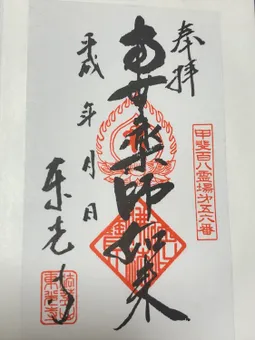 奉拝
甲斐百八霊場第五六番
南無薬師如来
平成 年 月 日
東光寺